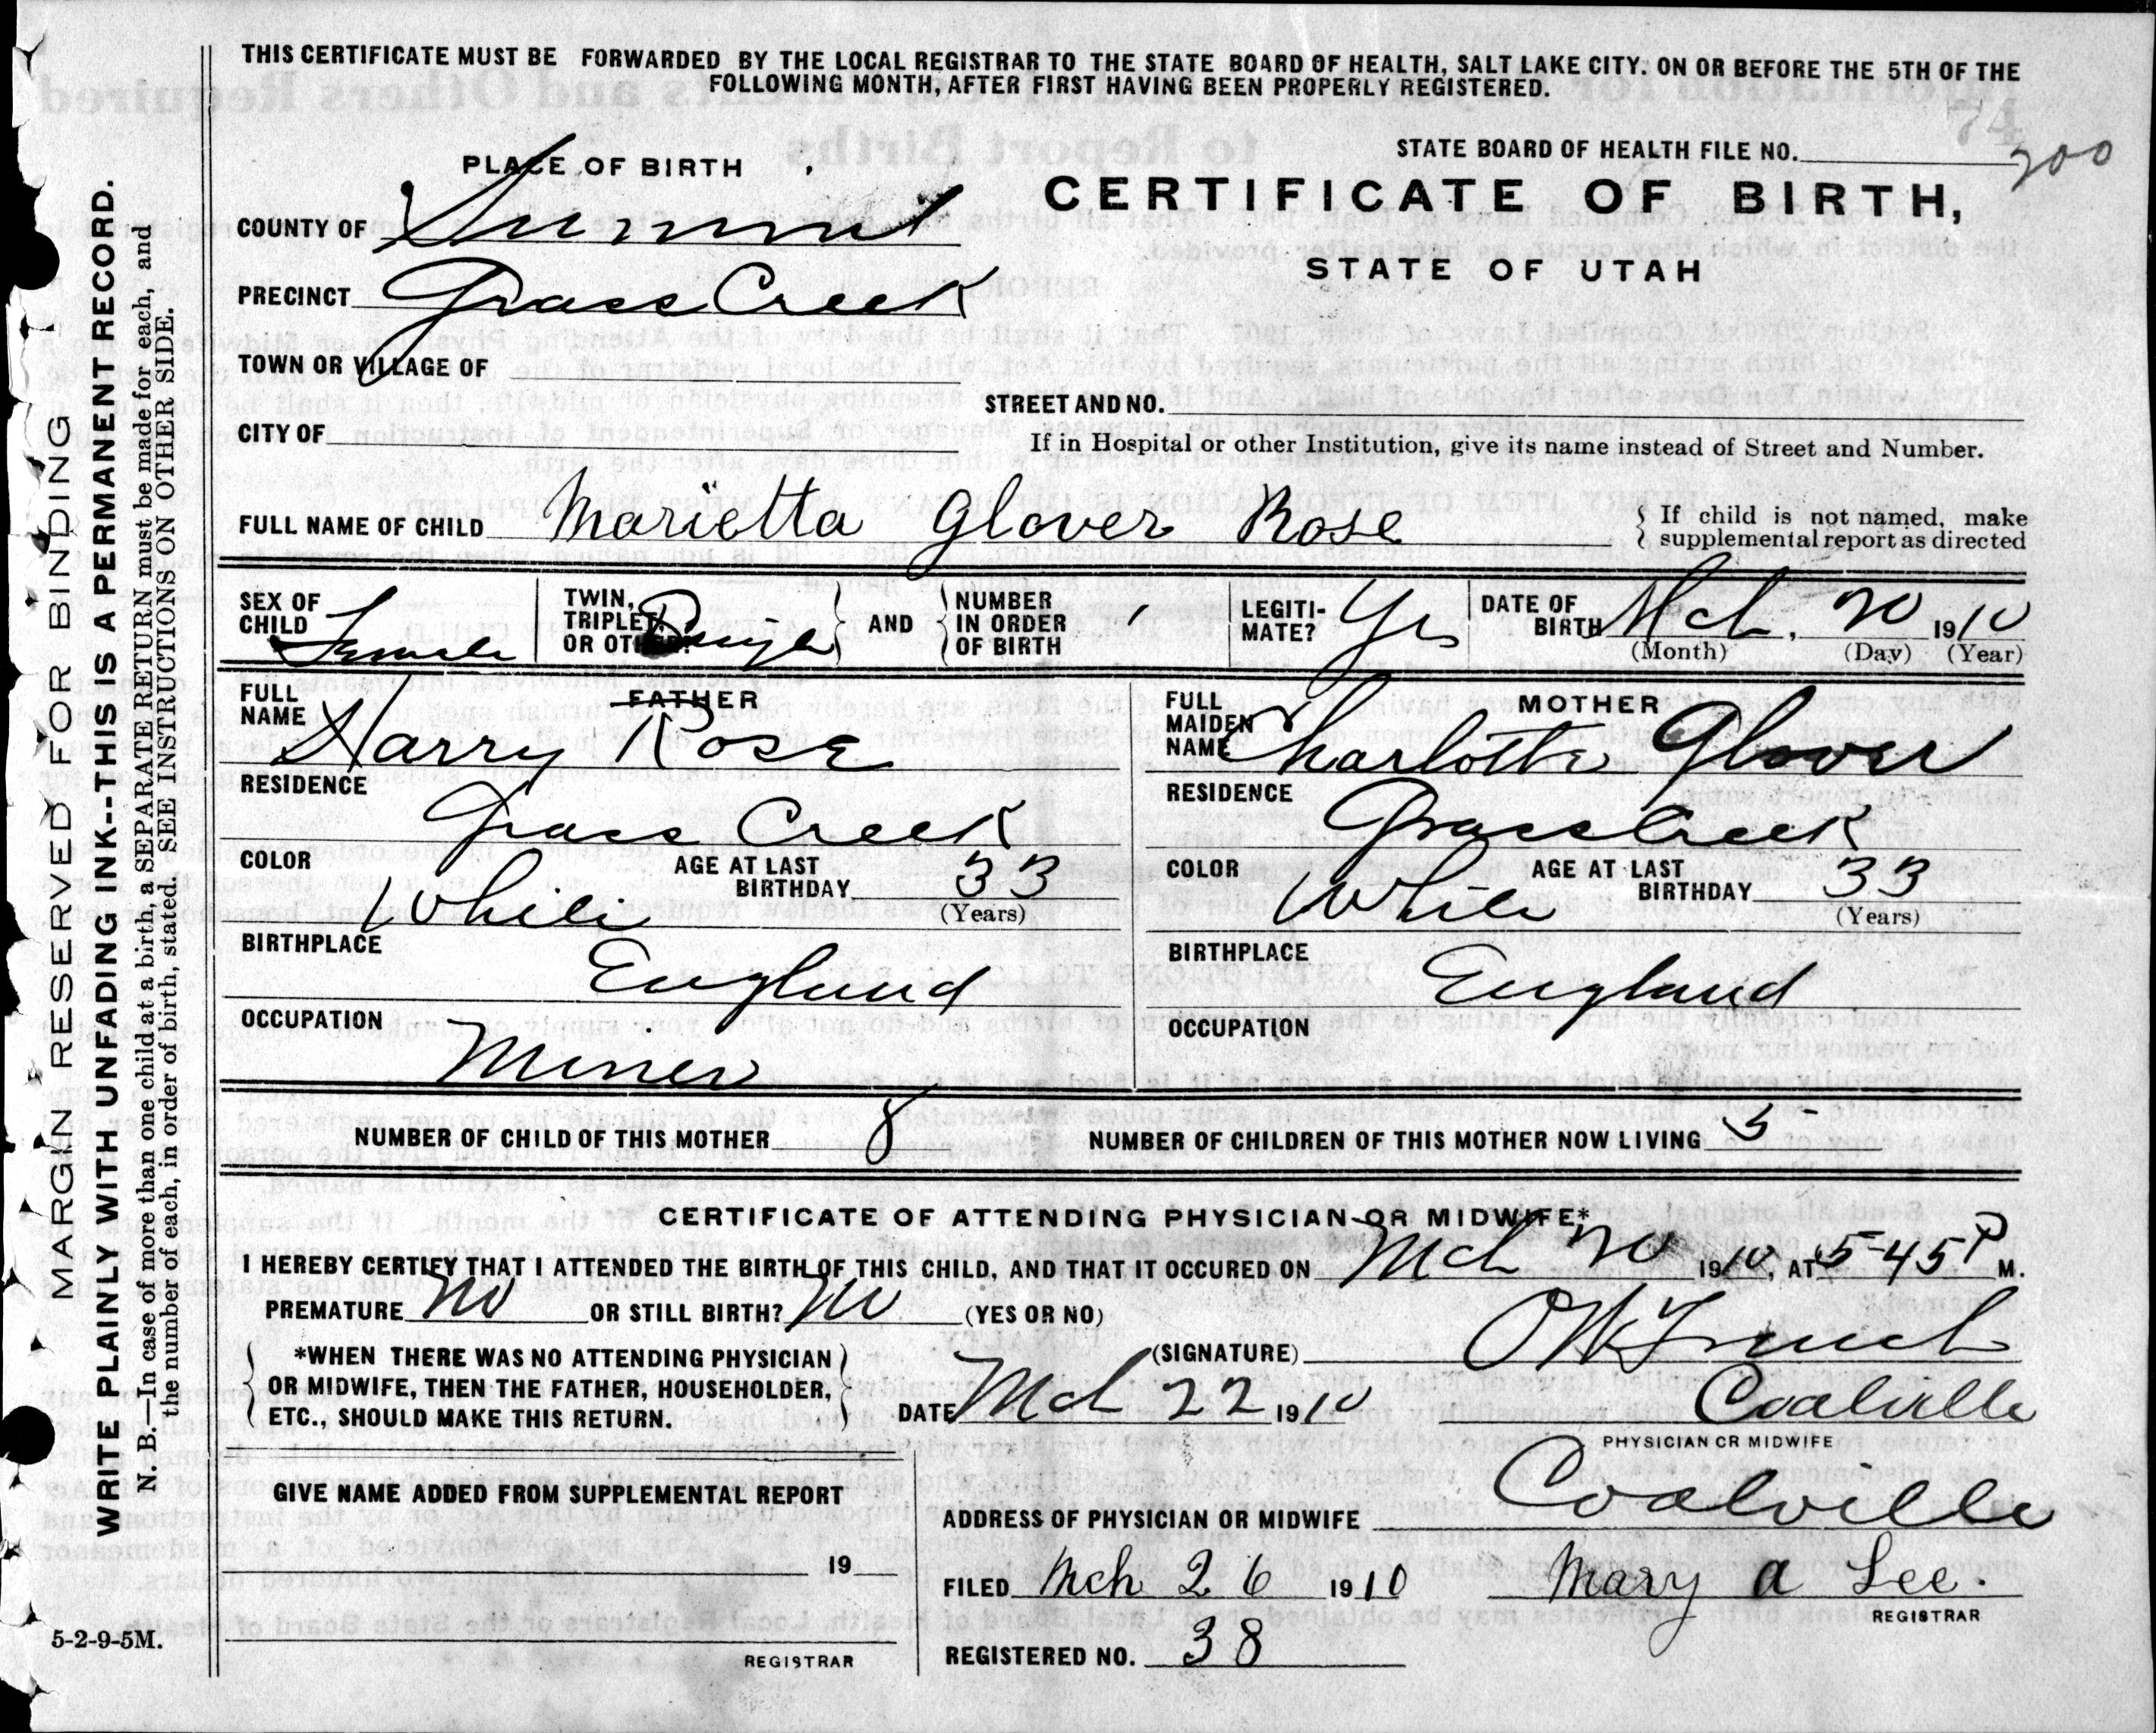 THIS CERTIFICATE MUST BE FORWARDED BY THE LOCAL REGISTRAR TO THE STATE BOARD OF HEALTH, SALT LAKE CITY. ON OR BEFORE THE 5TH OF THE
FOLLOWING MONTH, AFTER FIRST HAVING BEEN PROPERLY REGISTERED.
74
STATE BOARD OF HEALTH FILE NO. 200
PLACE OF BIRTH
CERTIFICATE OF BIRTH,
STATE OF UTAH
COUNTY OF Summit
PRECINCT Grass Creek
TOWN OR VILLAGE OF
STREET AND NO.
CITY OF
If in Hospital or other Institution, give its name instead of Street and Number.
FULL NAME OF CHILD Marietta Glover Rose
If child is not named, make
supplemental report as directed
SEX OF CHILD Female
TWIN, TRIPLET, OR OTHER?
AND
NUMBER IN ORDER OF BIRTH 1
LEGITI-MATE? Yes
DATE OF BIRTH Mch. 20 1910
(Month) (Day) (Year)
FATHER
FULL NAME Harry Rose
RESIDENCE
Grass Creek
COLOR White
AGE AT LAST BIRTHDAY 33
(Years)
BIRTHPLACE
England
OCCUPATION
Miner
MOTHER
FULL MAIDEN NAME Charlotte Glover
RESIDENCE
Grass Creek
COLOR White
AGE AT LAST BIRTHDAY 33
(Years)
BIRTHPLACE
England
OCCUPATION
NUMBER OF CHILD OF THIS MOTHER 8
NUMBER OF CHILDREN OF THIS MOTHER NOW LIVING 5
CERTIFICATE OF ATTENDING PHYSICIAN OR MIDWIFE*
I HEREBY CERTIFY THAT I ATTENDED THE BIRTH OF THIS CHILD, AND THAT IT OCCURED ON Mch 20 1910, AT 5-45 P M.
PREMATURE No OR STILL BIRTH? No (YES OR NO)
*WHEN THERE WAS NO ATTENDING PHYSICIAN
OR MIDWIFE, THEN THE FATHER, HOUSEHOLDER,
ETC., SHOULD MAKE THIS RETURN.
(SIGNATURE)
DATE Mch 22 1910
Coalville
PHYSICIAN OR MIDWIFE
GIVE NAME ADDED FROM SUPPLEMENTAL REPORT
19
REGISTRAR
ADDRESS OF PHYSICIAN OR MIDWIFE Coalville
FILED Mch 26 1910 Mary A Lee.
REGISTRAR
REGISTERED NO. 38
MARGIN RESERVED FOR BINDING
WRITE PLAINLY WITH UNFADING INK--THIS IS A PERMANENT RECORD.
N. B.—In case of more than one child at a birth, a SEPARATE RETURN must be made for each, and
the number of each, in order of birth, stated. SEE INSTRUCTIONS ON OTHER SIDE.
5-2-9-5M.